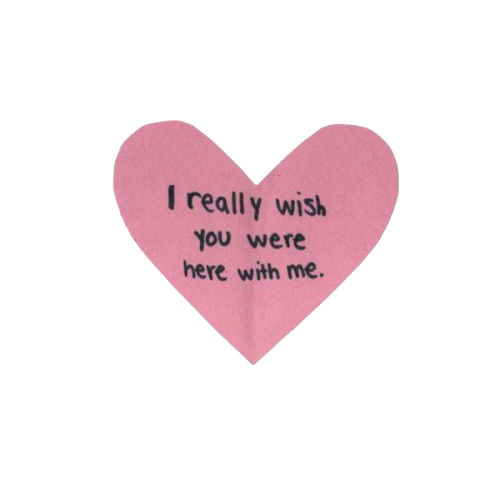 I really wish
you were
here with me.